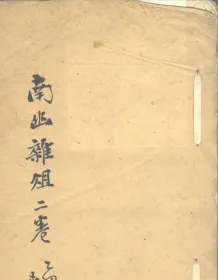 南幽雜俎二卷